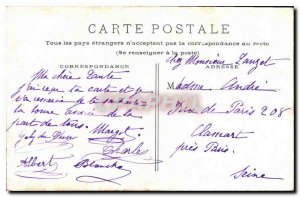 CARTE POSTALE
Tous les pays étrangers n'acceptent pas la correspondance au recto
(Se renseigner à la poste)
CORRESPONDANCE
ADRESSE
Ma chère Tante
J'ai reçu ta carte et je
t'en remercie de
la bonne année de la
part de tous. Margot
Charles
Albert Blanche
chez Monsieur
Madame André
Rue de Paris 208
Clamart
près Paris.
Seine